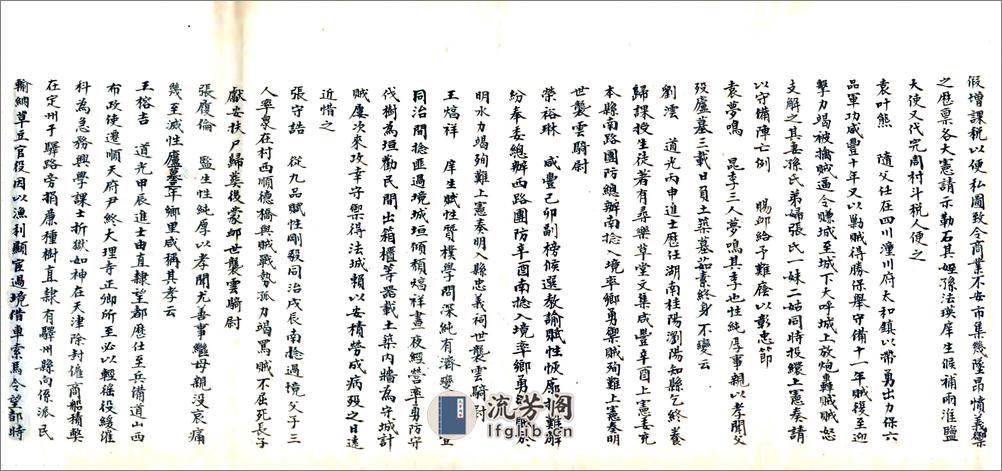 假增課税以便私圖致令商業不安市集幾墮昂憤其義稟
之歴稟各大憲請示勒石其姪孫法瑛庠生候補兩淮鹽
大使又代完周村斗税人便之
袁叶熊　隨父任在四川潼川府太和鎮以帶勇出力保六
品軍功咸豐十年又以勦賊得勝保舉守備十一年賊復至迎
擊力竭被擒賊逼令賺城至城下大呼城上放炮轟賊賊怒
支解之其妻孫氏弟婦張氏一妹二姪同時投繯上憲奏請
以守備陣亡例　賜卹給予難廕以彰忠節
袁夢鳴　昆季三人夢鳴其季也性純厚事親以孝聞父
歿廬墓三載日負土築墓茹素終身不變云
劉澐　道光丙申進士歴任湖南桂陽瀏陽知縣乞終養
歸課授生徒著有尋樂草堂文集咸豐辛酉上憲委充
本縣南路團防總辦南捻入境率鄉勇禦賊殉難上憲奏明
世襲雲騎尉
榮裕琳　咸豐己卯副榜候選教諭賦性恢廓排難解
紛奉委總辦西路團防辛酉南捻入境率鄉勇
明水力竭殉難上憲奏明入縣忠義祠世襲雲騎尉
王熺祥　庠生賦性質樸學問深純有濟變
同治間捻匪過境城垣傾頽熺祥晝夜經營率勇防守
伐樹為垣勸民間出箱櫃等器載土築内牆為守城計
賊屢次來攻幸守禦得法城賴以安積勞成病歿之日遠
近惜之
張守諮　從九品賦性剛毅同治戊辰南捻過境父子三
人率衆在村西順德橋與賊戰勢孤力竭罵賊不屈死長子
獻安扶尸歸葬後蒙卹世襲雲騎尉
張履倫　監生性純厚以孝聞尤善事繼母親没哀痛
幾至滅性廬墓三年鄉里咸稱其孝云
王榕吉　道光甲辰進士由直隸望都歴任至兵備道山西
布政使遷順天府尹終大理寺正卿所至必以輕徭役緩催
科為急務興學課士折獄如神在天津除封僱商船積弊
在定州于驛路旁捐廉種樹直隸有驛州縣向係派民
輸納草豆官役因以漁利顯官過境借車索馬令望都時
流芳阁
lfglib.cn